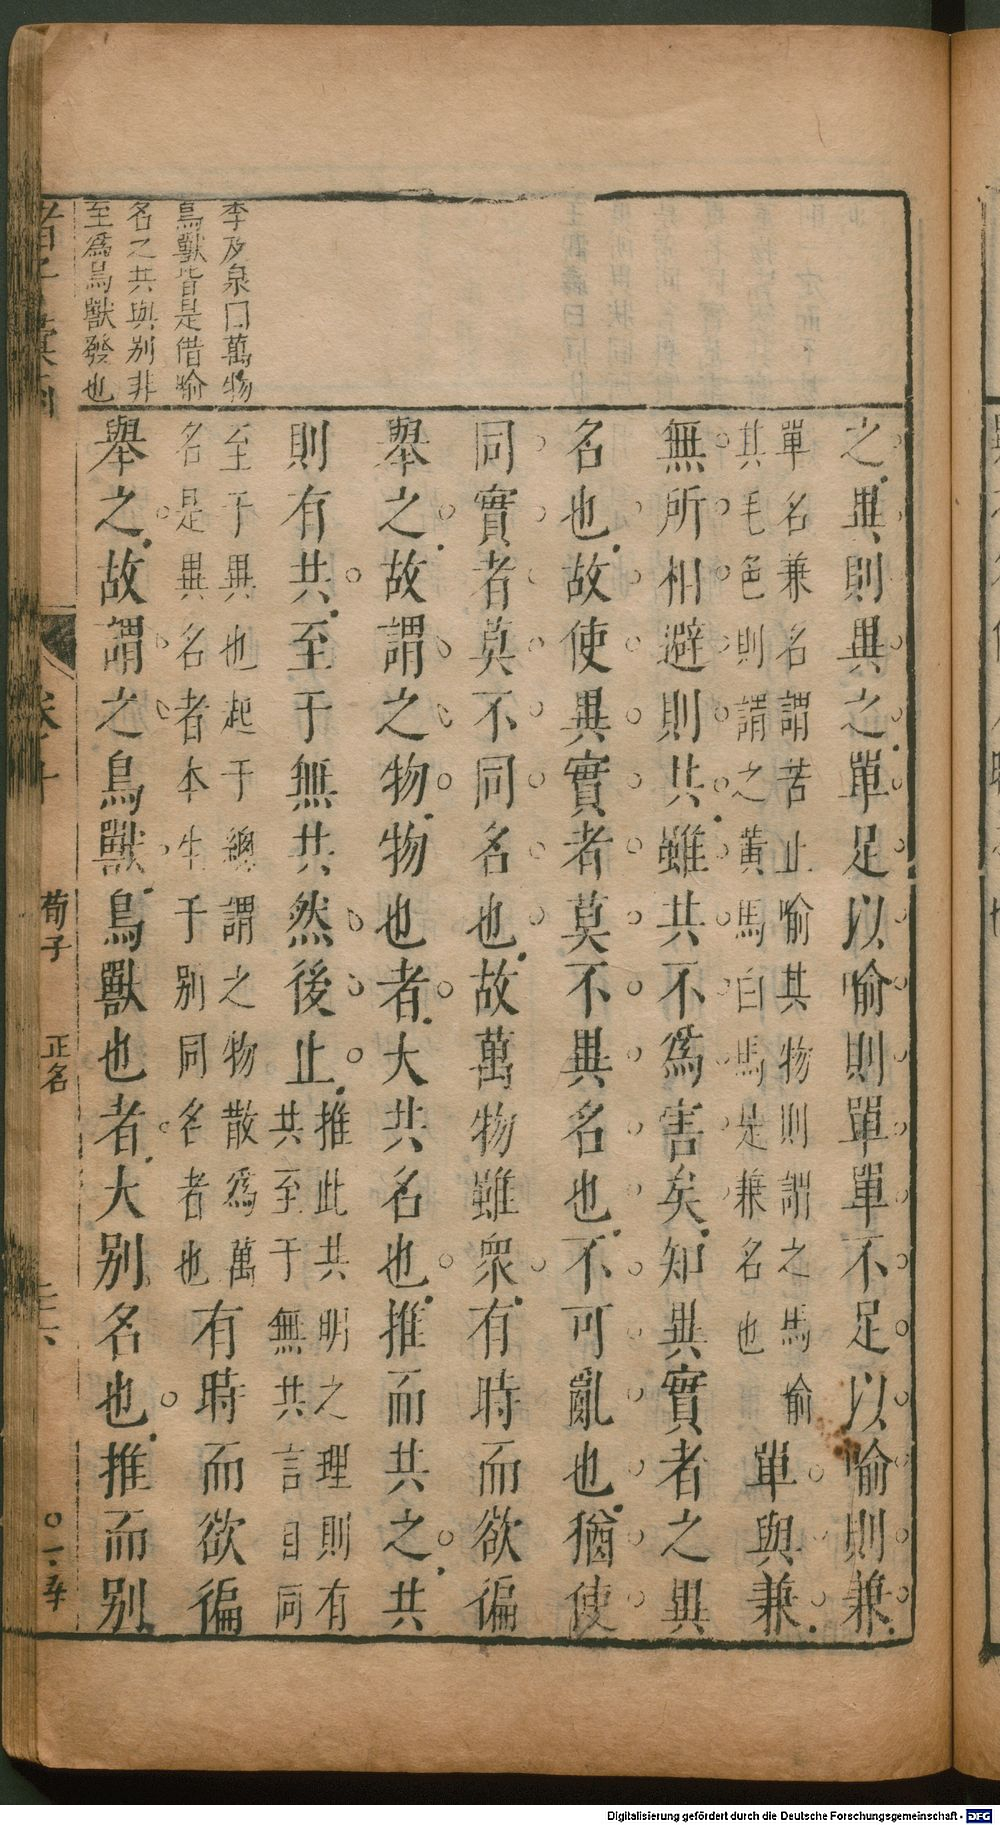 李及泉曰萬物
鳥獸皆是借喻
名之共與別非
至爲鳥獸發也
之異則異之單足以喻則單單不足以喻則兼
單名兼名謂若止喻其物則謂之馬喻
其毛色則謂之黄馬白馬是兼名也
單與兼
無所相避則共雖共不爲害矣知異實者之異
名也故使異實者莫不異名也不可亂也猶使
同實者莫不同名也故萬物雖衆有時而欲徧
舉之故謂之物物也者大共名也推而共之共
則有共至于無共然後止
推此共明之理則有
共至于無共言自同
至于異也起于總謂之物散爲萬
名是異名者本生于別同名者也
有時而欲徧
舉之故謂之鳥獸鳥獸也者大別名也推而別
荀子
正名